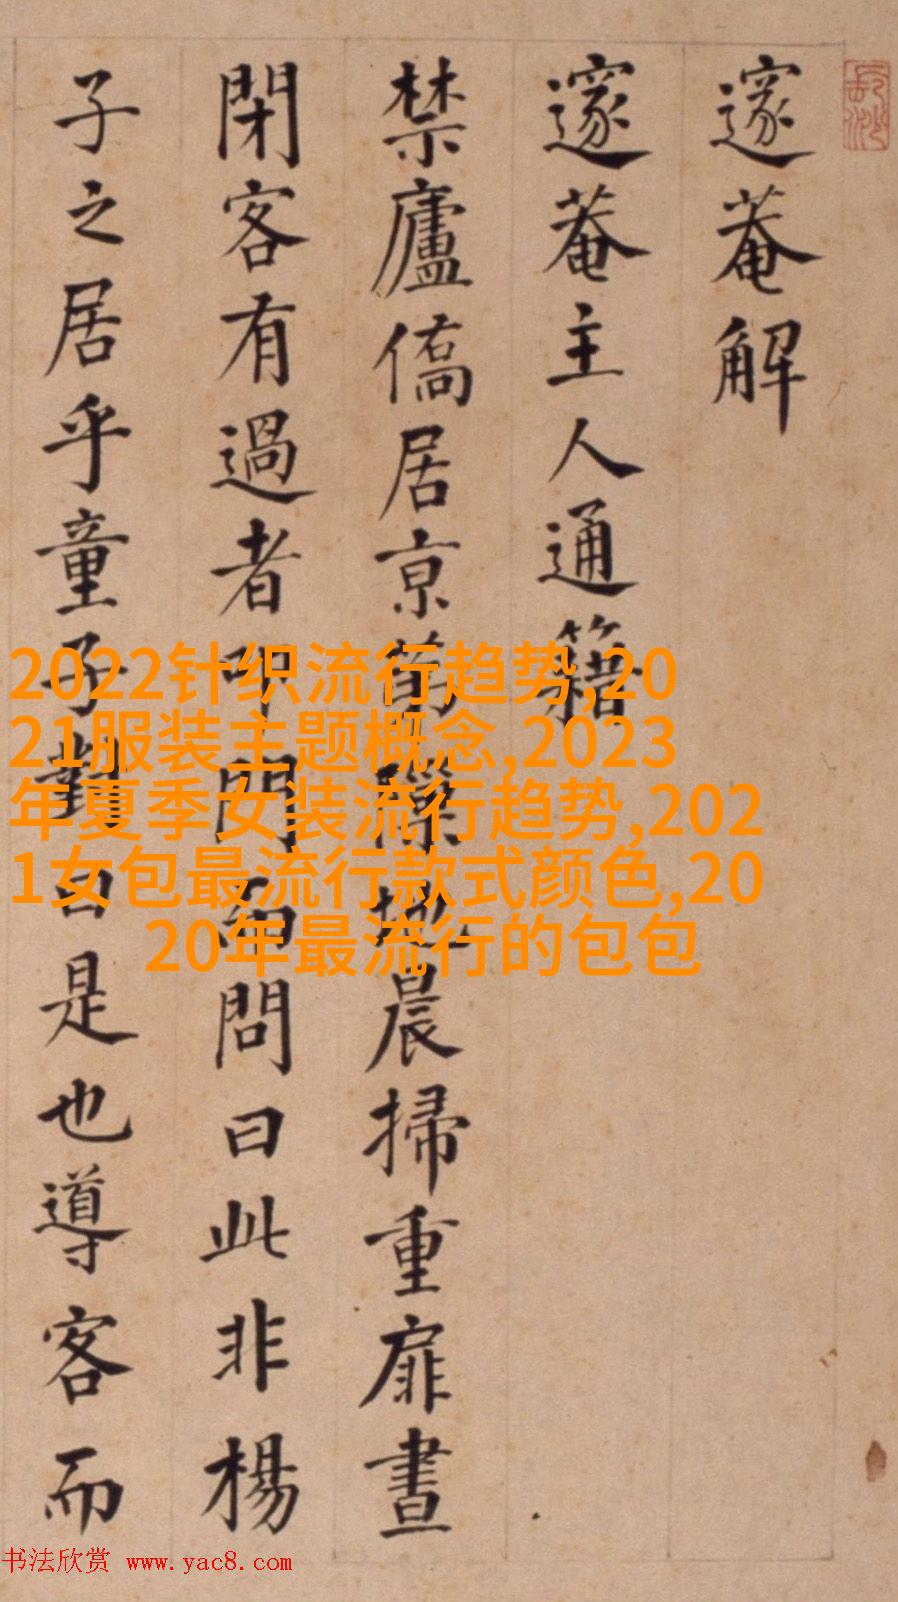 邃菴解
邃菴主人通籍
禁廬僑居京隙地晨掃重扉晝
閉客有過者叩門而問曰此非楊
子之居乎童子對曰是也導客而
2022针织流行趋势,20
21服装主题概念,2023
年夏季女装流行趋势,202
1女包最流行款式颜色,20
20年最流行的包包
书法欣赏 www.yac8.com